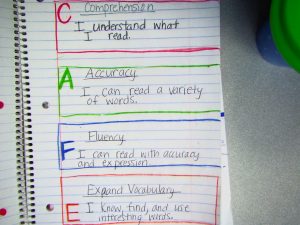 C Comprehension
I understand what
I read.
A Accuracy
I can read a variety
of words.
F Fluency
I can read with accuracy
and expression.
E Expand Vocabulary
I know, find, and use
interesting words.